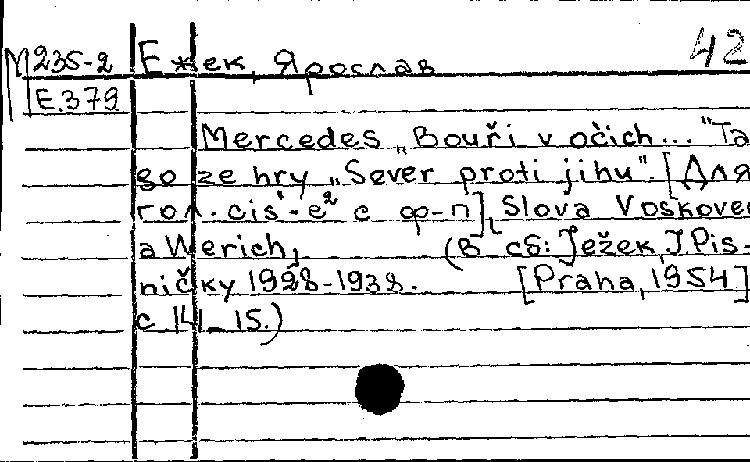 М235-2 Ежек, Ярослав 42
Е.379
Mercedes „Bouři v očích..." Ta
go ze hry „Sever proti jihu". [Для
гол. cis¹-e² с ф-п], Slova Voskovec
a Werich,        (В сб: Ježek, J. Pis-
ničky 1928-1938.        [Praha, 1954]
с 141-15.)